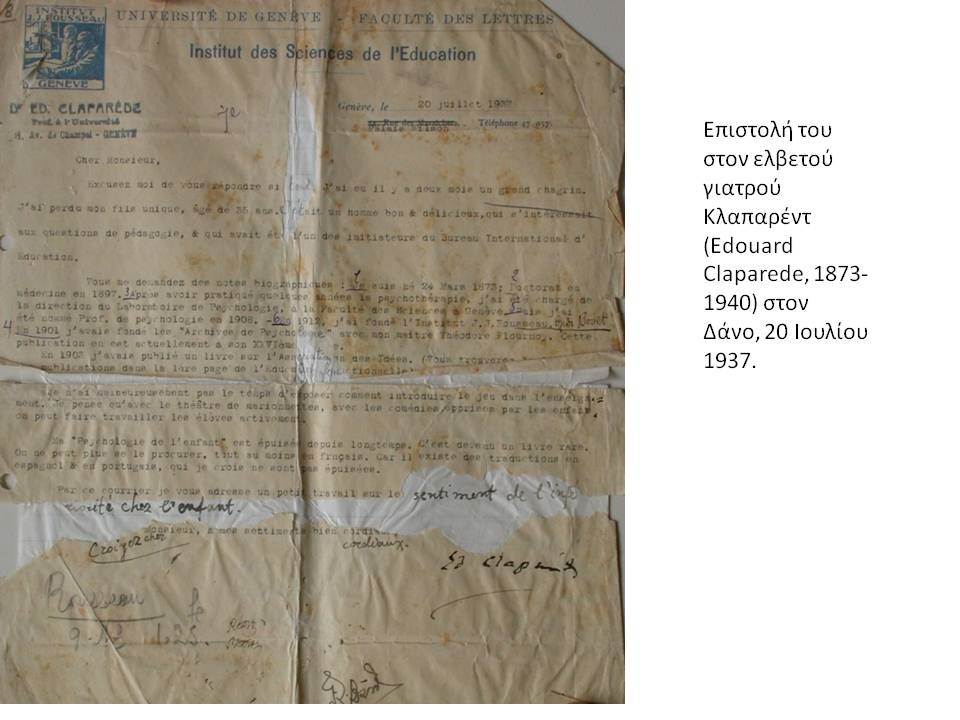 INSTITVT
J.J. ROUSSEAU
GENÈVE
UNIVERSITÉ DE GENÈVE - FACULTÉ DES LETTRES
Institut des Sciences de l'Education
Dr ED. CLAPARÈDE
Prof. à l'Université
Av. de Champel - GENÈVE
Genève, le 20 juillet 1937
Téléphone
Palais Wilson
Cher Monsieur,
Excusez moi de vous répondre si tard. J'ai eu il y a deux mois un grand chagrin.
J'ai perdu mon fils unique, âgé de 35 ans. C'était un homme bon & délicieux, qui s'intéressait
aux questions de pédagogie, & qui avait été l'un des initiateurs du Bureau International d'
Education.
Vous me demandez des notes biographiques : 1 Je suis né 24 Mars 1873; 2 Doctorat en
médecine en 1897. 3 Après avoir pratiqué quelques années la psychothérapie, j'ai été chargé de
la direction du Laboratoire de Psychologie, à la Faculté des Sciences à Genève, puis j'ai
été nommé Prof. de psychologie en 1908. - En 1912, j'ai fondé l'Institut J.J.Rousseau, Bovet
4 En 1901 j'avais fondé les "Archives de Psychologie" avec mon maître Théodore Flournoy. Cette
publication en est actuellement à son
En 1903 j'avais publié un livre sur l'Association des Idées. (Vous trouverez
publications dans la 1ère page de l'Education fonctionnelle
Je n'ai malheureusement pas le temps d'exposer comment introduire le jeu dans l'enseigne-
ment. Je pense qu'avec le théâtre de marionnettes, avec les comédies apprises par les enfants
on peut faire travailler les élèves activement.
Ma "Psychologie de l'enfant" est épuisée depuis longtemps. C'est devenu un livre rare.
On ne peut plus se le procurer, tout au moins en français. Car il existe des traductions en
espagnol & en portugais, qui je crois ne sont pas épuisées.
Par ce courrier je vous adresse un petit travail sur le sentiment de l'infé
riorité chez l'enfant.
Croyez cher Monsieur, à mes
cordiaux.
Ed Claparède
Rousseau
Επιστολή του
στον ελβετού
γιατρού
Κλαπαρέντ
(Edouard
Claparede, 1873-
1940) στον
Δάνο, 20 Ιουλίου
1937.